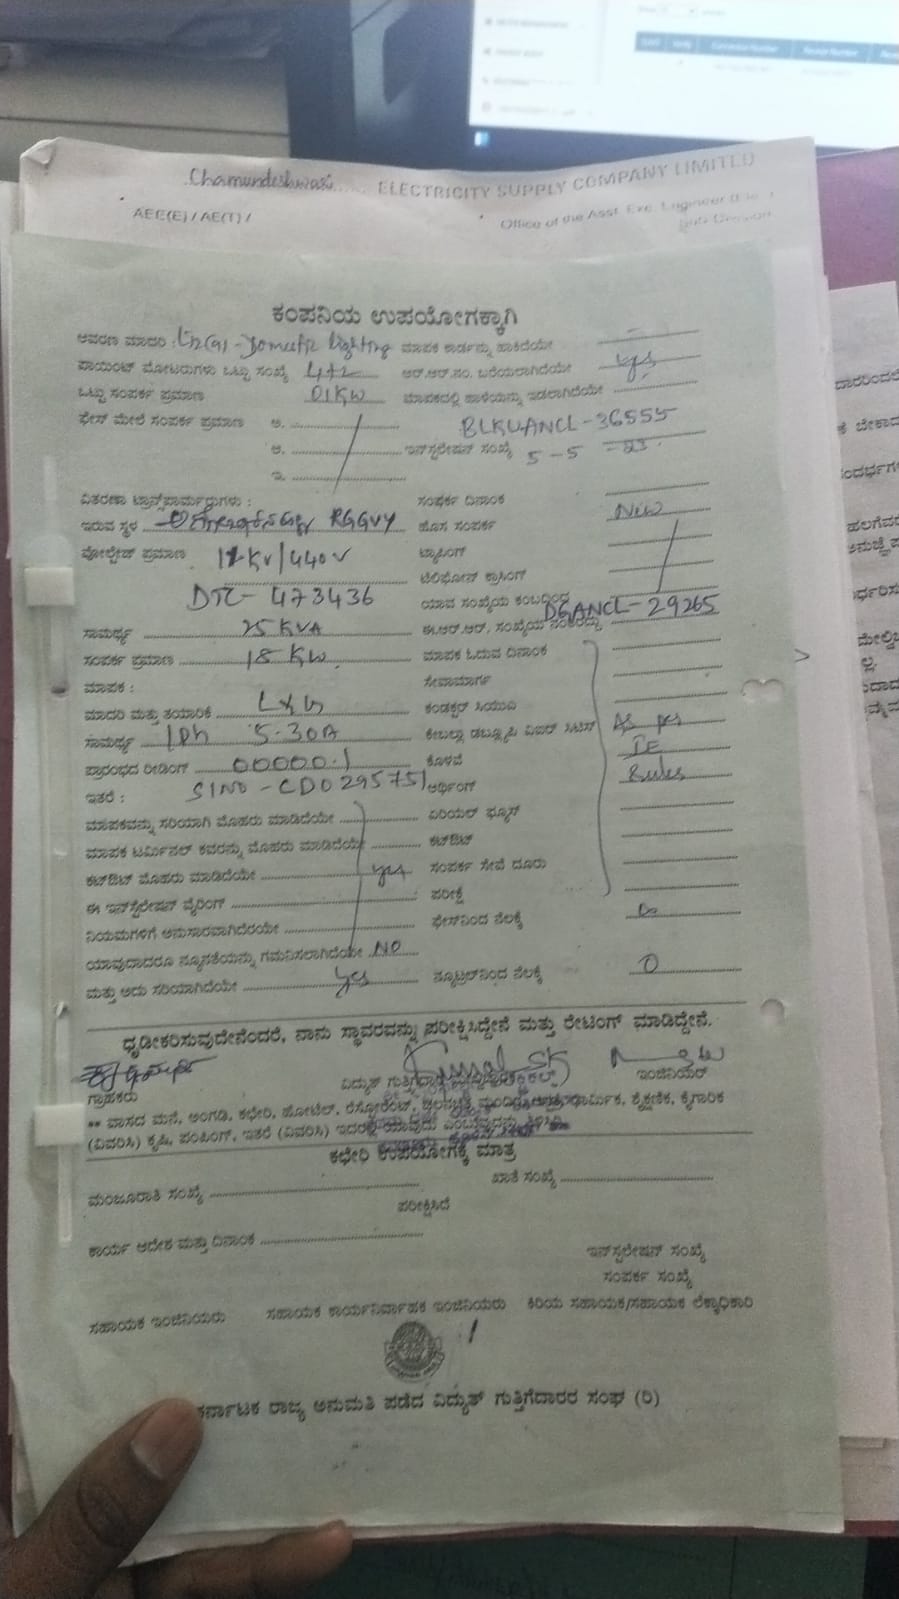 Chamundeshwari ELECTRICITY SUPPLY COMPANY LIMITED
AEE(E) / AE(T) /
Office of the Asst. Exe. Engineer
Sub-Division
ಕಂಪನಿಯ ಉಪಯೋಗಕ್ಕಾಗಿ
ಆವರಣ ಮಾದರಿ : Domestic lighting ಮಾಪಕ ಕಾರ್ಡನ್ನು ಹಾಕಿದೆಯೇ
ಪಾಯಿಂಟ್ ಮೋಟರುಗಳು ಒಟ್ಟು ಸಂಖ್ಯೆ 4+2 ಆರ್.ಆರ್.ನಂ. ಬರೆಯಲಾಗಿದೆಯೇ yes
ಒಟ್ಟು ಸಂಪರ್ಕ ಪ್ರಮಾಣ 01KW ಮಾಪಕದಲ್ಲಿ ಹಾಳೆಯನ್ನು ಇಡಲಾಗಿದೆಯೇ
ಫೇಸ್ ಮೇಲೆ ಸಂಪರ್ಕ ಪ್ರಮಾಣ ಅ. BLKUANCL-36555
ಆ. ಇನ್‌ಸ್ಟಲೇಷನ್ ಸಂಖ್ಯೆ 5-5-23
ಇ.
ವಿತರಣಾ ಟ್ರಾನ್ಸ್‌ಫಾರ್ಮರ್‍ರುಗಳು : ಸಂಪರ್ಕ ದಿನಾಂಕ
ಇರುವ ಸ್ಥಳ RGGVY ಹೊಸ ಸಂಪರ್ಕ New
ವೋಲ್ಟೇಜ್ ಪ್ರಮಾಣ 11KV/440V ಟ್ಯಾಪಿಂಗ್
ಟೆಲಿಫೋನ್ ಕ್ರಾಸಿಂಗ್
DTC-473436 ಯಾವ ಸಂಖ್ಯೆಯ ಕಂಬದಿಂದ
ಸಾಮರ್ಥ್ಯ 25 KVA ಈ.ಆರ್.ಆರ್. ಸಂಖ್ಯೆಯ DGANCL-29265
ಸಂಪರ್ಕ ಪ್ರಮಾಣ 18 KW ಮಾಪಕ ಓದುವ ದಿನಾಂಕ
ಮಾಪಕ : ಸೇವಾಮಾರ್ಗ
ಮಾದರಿ ಮತ್ತು ತಯಾರಿಕೆ L&G ಕಂಡಕ್ಟರ್ ಸಿಯುವಿ
ಸಾಮರ್ಥ್ಯ 1Ph 5-30A ಕೇಬಲ್ಲಾ ಡಬ್ಲ್ಯೂಪಿ As per
ಪ್ರಾರಂಭದ ರೀಡಿಂಗ್ 00000.1 ಕೊಳವೆ IE
ಇತರೆ : SlNO-CD0295751 ಅರ್ಥಿಂಗ್ Rules
ಮಾಪಕವನ್ನು ಸರಿಯಾಗಿ ಮೊಹರು ಮಾಡಿದೆಯೇ ಏರಿಯಲ್ ಫ್ಯೂಸ್
ಮಾಪಕ ಟರ್ಮಿನಲ್ ಕವರನ್ನು ಮೊಹರು ಮಾಡಿದೆಯೇ ಕಟ್‌ಔಟ್
ಕಟ್‌ಔಟ್ ಮೊಹರು ಮಾಡಿದೆಯೇ yes ಸಂಪರ್ಕ ಸೇವೆ ದೂರು
ಈ ಇನ್‌ಸ್ಟಲೇಷನ್ ವೈರಿಂಗ್ ಪರೀಕ್ಷೆ
ನಿಯಮಗಳಿಗೆ ಅನುಸಾರವಾಗಿದೆಯೇ ಫೇಸ್‌ನಿಂದ ನೆಲಕ್ಕೆ ∞
ಯಾವುದಾದರೂ ನ್ಯೂನತೆಯನ್ನು ಗಮನಿಸಲಾಗಿದೆಯೇ NO
ಮತ್ತು ಅದು ಸರಿಯಾಗಿದೆಯೇ yes ನ್ಯೂಟ್ರಲ್‌ನಿಂದ ನೆಲಕ್ಕೆ 0
ಧೃಡೀಕರಿಸುವುದೇನೆಂದರೆ, ನಾನು ಸ್ಥಾವರವನ್ನು ಪರೀಕ್ಷಿಸಿದ್ದೇನೆ ಮತ್ತು ರೇಟಿಂಗ್ ಮಾಡಿದ್ದೇನೆ.
ಗ್ರಾಹಕರು ವಿದ್ಯುತ್ ಗುತ್ತಿಗೆದಾರ ಇಂಜಿನಿಯರ್
** ವಾಸದ ಮನೆ, ಅಂಗಡಿ, ಕಛೇರಿ, ಹೋಟೆಲ್, ರೆಸ್ಟೋರೆಂಟ್, ಚಲನಚಿತ್ರ ಮಂದಿರ, ಆಸ್ಪತ್ರೆ, ಧಾರ್ಮಿಕ, ಶೈಕ್ಷಣಿಕ, ಕೈಗಾರಿಕ
(ವಿವರಿಸಿ) ಕೃಷಿ, ಪಂಪಿಂಗ್, ಇತರೆ (ವಿವರಿಸಿ) ಇದರಲ್ಲಿ ಯಾವುದು ಎಂಬುದನ್ನು ತಿಳಿಸಿ
ಕಛೇರಿ ಉಪಯೋಗಕ್ಕೆ ಮಾತ್ರ
ಮಂಜೂರಾತಿ ಸಂಖ್ಯೆ ಖಾತೆ ಸಂಖ್ಯೆ
ಪರೀಕ್ಷಿಸಿದೆ
ಕಾರ್ಯ ಆದೇಶ ಮತ್ತು ದಿನಾಂಕ
ಇನ್‌ಸ್ಟಲೇಷನ್ ಸಂಖ್ಯೆ
ಸಂಪರ್ಕ ಸಂಖ್ಯೆ
ಸಹಾಯಕ ಇಂಜಿನಿಯರು ಸಹಾಯಕ ಕಾರ್ಯನಿರ್ವಾಹಕ ಇಂಜಿನಿಯರು ಕಿರಿಯ ಸಹಾಯಕ/ಸಹಾಯಕ ಲೆಕ್ಕಾಧಿಕಾರಿ
ಕರ್ನಾಟಕ ರಾಜ್ಯ ಅನುಮತಿ ಪಡೆದ ವಿದ್ಯುತ್ ಗುತ್ತಿಗೆದಾರರ ಸಂಘ (ರಿ)